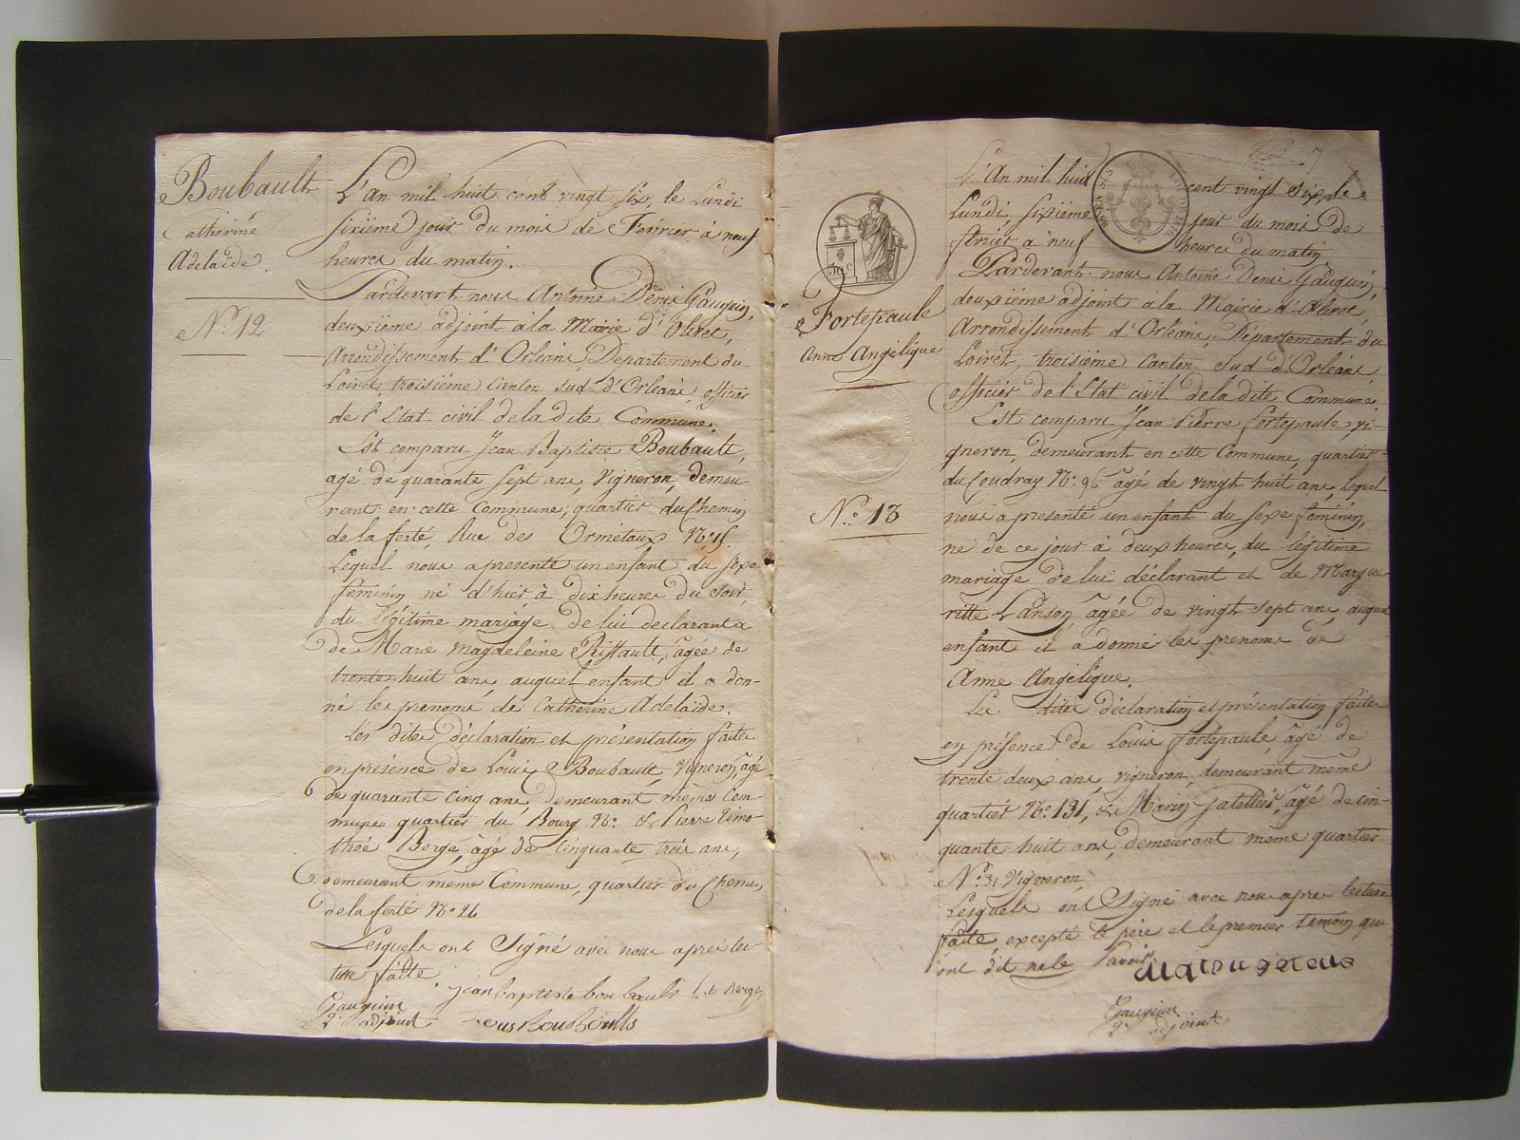 Boubault
Catherine
Adelaïde.
N.º 12
L'an mil huit cent vingt six, le Lundi
sixième jour du mois de Février à neuf
heures du matin.
Pardevant nous Antoine Denis Gauguin,
deuxième adjoint à la Mairie d'Olivet,
Arrondissement d'Orléans, Département du
Loiret, troisième Canton sud d'Orléans, officier
de l'Etat civil de la dite Commune.
Est comparu Jean Baptiste Boubault,
agé de quarante sept ans, Vigneron, demeu-
rant en cette Commune, quartier du Chemin
de la ferté, Rue des Ormetaux Nº
Lequel nous a présenté un enfant du sexe
féminin né d'hier à dix heures du soir,
du légitime mariage de lui déclarant &
de Marie Magdeleine Riffault, agée de
trente huit ans, auquel enfant il a don-
né les prenoms de Catherine Adelaïde.
Les dites déclaration et présentation faites
en présence de Louis Boubault, Vigneron, agé
de quarante cinq ans, demeurant même Com-
mune quartier du Bourg Nº & Pierre Timo-
thée Bergé, agé de cinquante trois ans,
demeurant même Commune, quartier du Chemin
de la ferté Nº 26
Lesquels ont Signé avec nous après lec-
ture faite.
jean baptiste boubault Bergé
Gauguin
2e adjoint
Fortepaule
Anne Angélique
N.º 13
L'An mil huit cent vingt six le
Lundi, sixième jour du mois de
février à neuf heures du matin
Pardevant nous Antoine Denis Gauguin,
deuxième adjoint à la Mairie d'Olivet,
Arrondissement d'Orléans, Département du
Loiret, troisième Canton Sud d'Orléans,
officier de l'Etat civil de la dite Commune,
Est comparu Jean Pierre Fortepaule, vi-
gneron, demeurant en cette Commune, quartier
du Coudray Nº 96 agé de vingt huit ans, lequel
nous a presenté un enfant du sexe féminin,
né de ce jour à deux heures, du légitime
mariage de lui déclarant et de Margue
ritte Lanson, agée de vingt sept ans, auquel
enfant il a donné les prenoms de
Anne Angélique.
Les dites déclaration et présentation faites
en présence de Louis Fortepaule agé de
trente deux ans, vigneron, demeurant même
quartier Nº 131, & agé de cin-
quante huit ans, demeurant même quartier
Nº 31 Vigneron
Lesquels ont Signé avec nous après lecture
faite, excepté le père et le premier témoin qui
ont dit ne le savoir.
Gauguin
2e adjoint